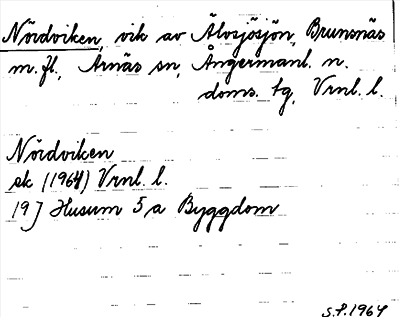 Nördviken, vik av Älvsjösjön, Brunsnäs
m.fl., Arnäs sn, Ångermanl. n.
doms. tg, Vrnl. l.
Nördviken
sk (1964) Vrnl. l.
19J Husum 5 a Byggdom
S.P. 1964